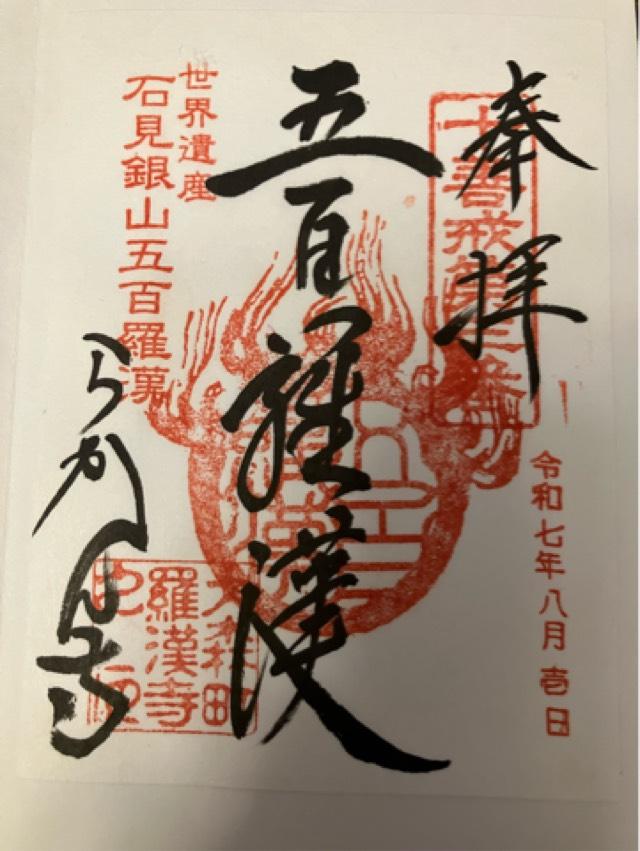 奉拝
十善戒第
令和七年八月壱日
五百羅漢
世界遺産
石見銀山五百羅漢
らかん寺
大森田
羅漢寺